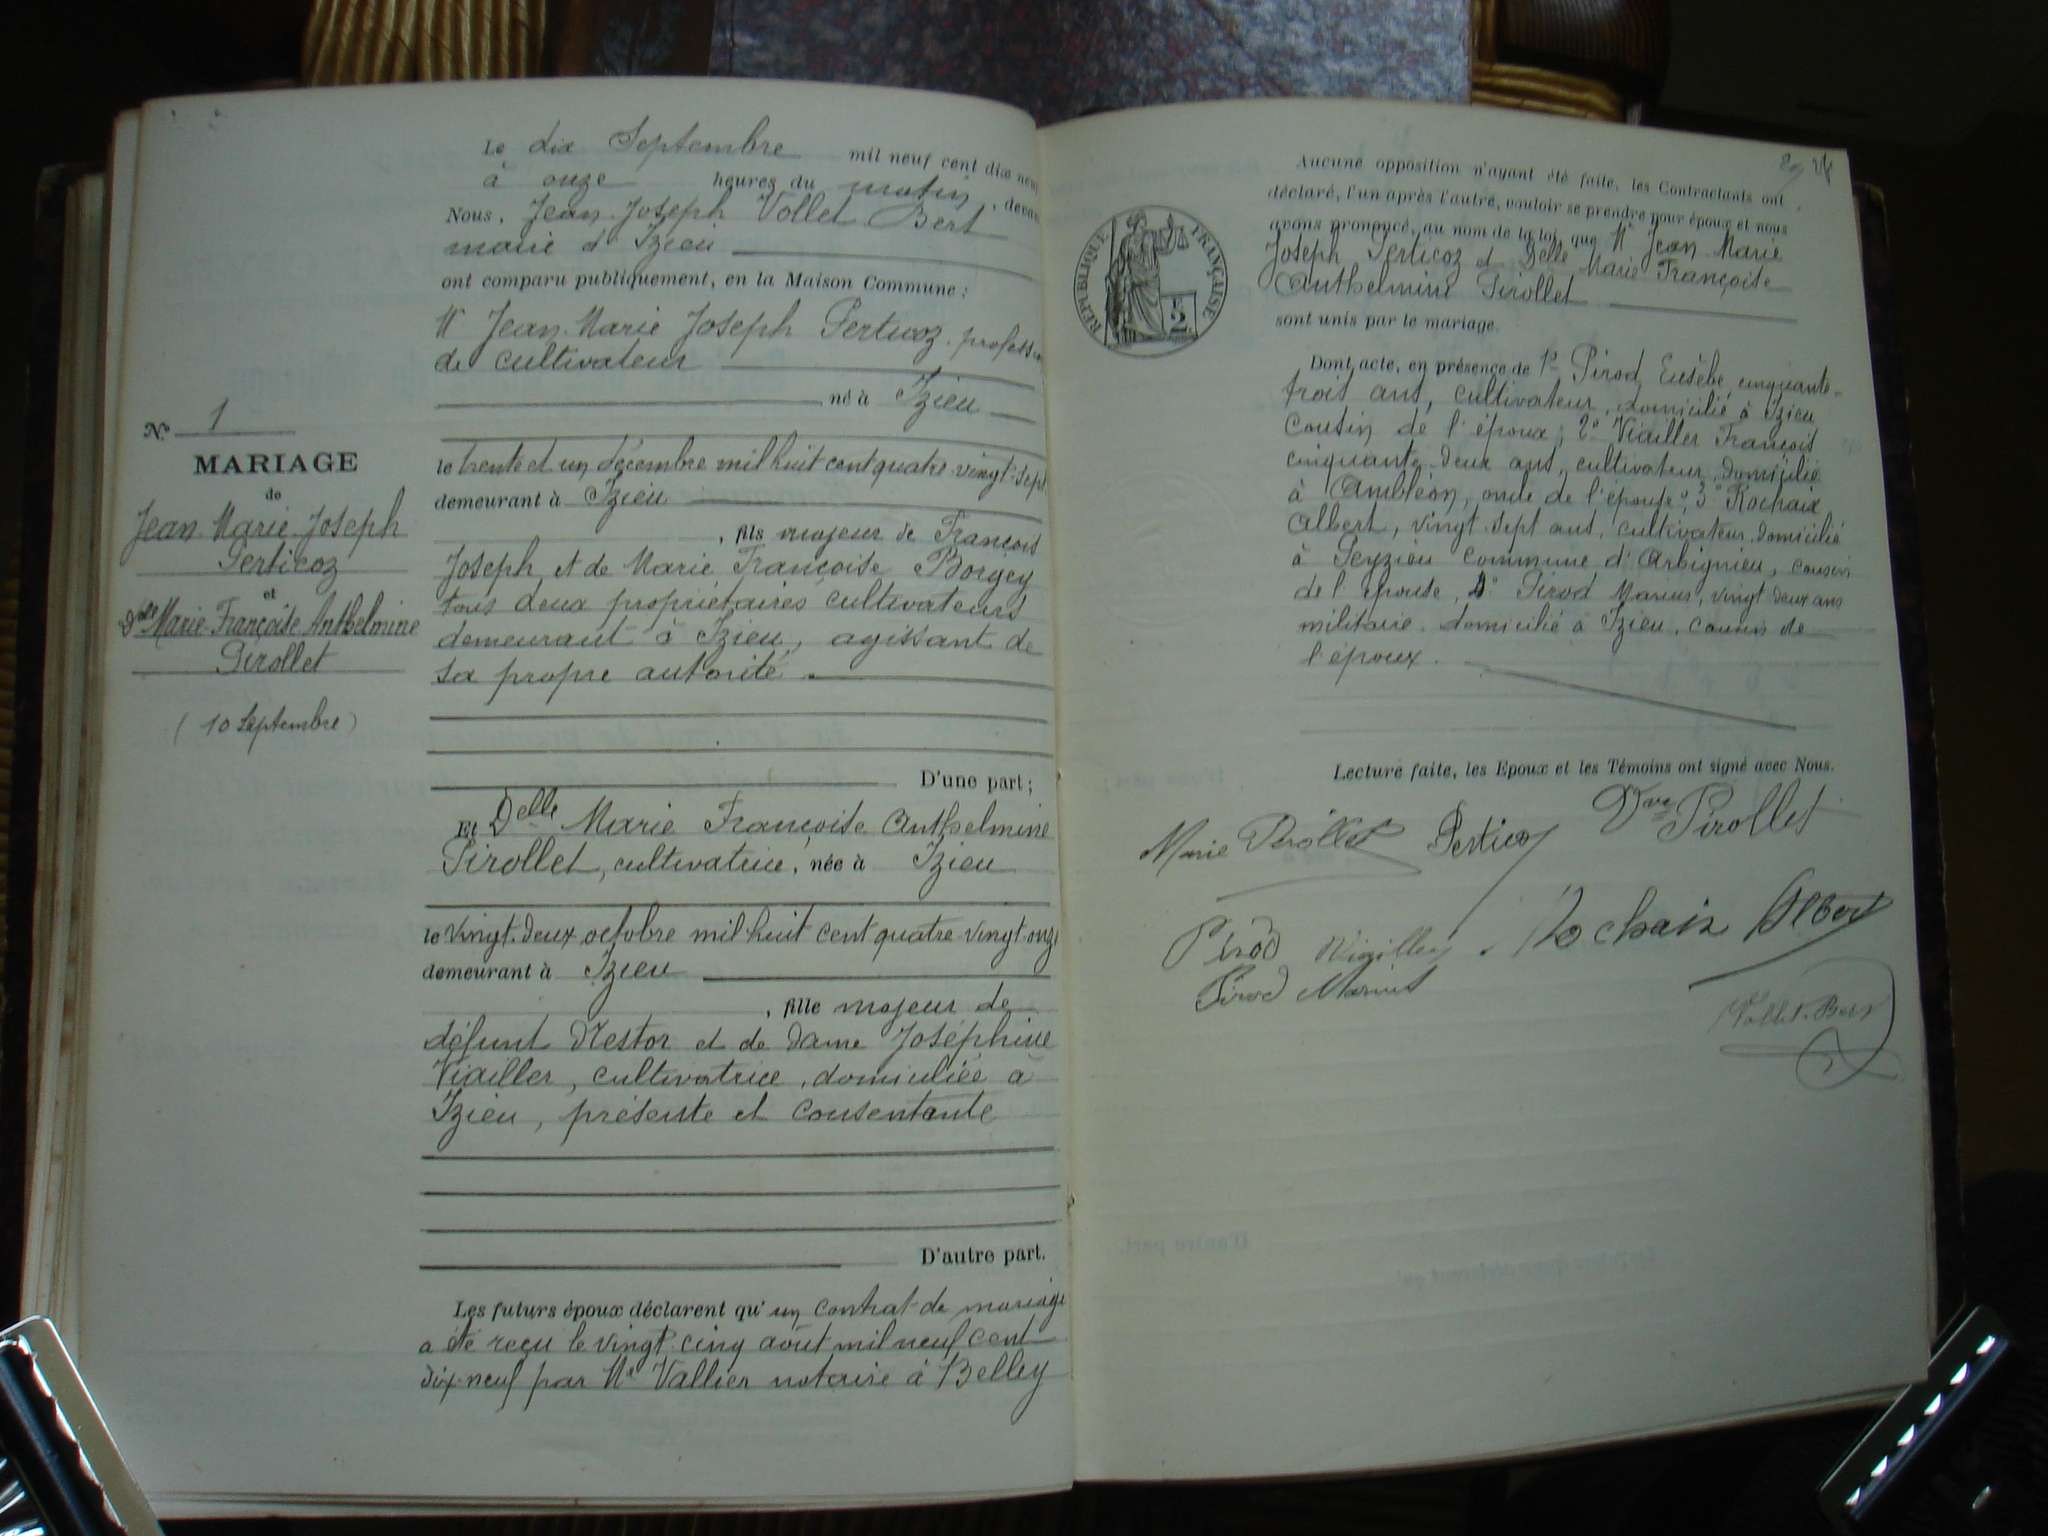 Le dix Septembre mil neuf cent dix neuf
à onze heures du matin, devant
Nous, Jean Joseph Vollet Bert
maire d'Izieu
ont comparu publiquement, en la Maison Commune :
Mr Jean Marie Joseph Perticoz, profession
de cultivateur
né à Izieu
le trente et un décembre mil huit cent quatre-vingt-sept
demeurant à Izieu
, fils majeur de François
Joseph et de Marie Françoise Borgey
tous deux propriétaires cultivateurs
demeurant à Izieu, agissant de
sa propre autorité.
D'une part ;
Et Delle Marie Françoise Anthelmine
Pirollet, cultivatrice, née à Izieu
le vingt-deux octobre mil huit cent quatre vingt onze
demeurant à Izieu
, fille majeur de
défunt Nestor et de dame Joséphine
Viailler, cultivatrice, domiciliée à
Izieu, présente et consentante
D'autre part.
Les futurs époux déclarent qu'un contrat de mariage
a été reçu le vingt cinq août mil neuf cent
dix-neuf par Me Vallier notaire à Belley
No 1
MARIAGE
de
Jean Marie Joseph
Perticoz
et
Delle Marie Françoise Anthelmine
Pirollet
(10 Septembre)
29
Aucune opposition n'ayant été faite, les Contractants ont
déclaré, l'un après l'autre, vouloir se prendre pour époux et nous
avons prononcé, au nom de la loi, que Mr Jean Marie
Joseph Perticoz et Delle Marie Françoise
Anthelmine Pirollet
sont unis par le mariage.
RÉPUBLIQUE FRANÇAISE
Dont acte, en présence de 1º Pirod Eusèbe, cinquante-
trois ans, cultivateur, domicilié à Izieu
cousin de l'époux ; 2º Viailler François
cinquante-deux ans, cultivateur, domicilié
à Ambléon, oncle de l'épouse, 3º Rochaix
Albert, vingt-sept ans, cultivateur, domicilié
à Peyzieu commune d'Arbignieu, cousin
de l'épouse, 4º Pirod Marius, vingt deux ans
militaire, domicilié à Izieu, cousin de
l'époux.
Lecture faite, les Epoux et les Témoins ont signé avec Nous.
Marie Pirollet Perticoz Vve Pirollet
Pirod Viailler Rochaix Albert
Pirod Marius
Vollet-Bert